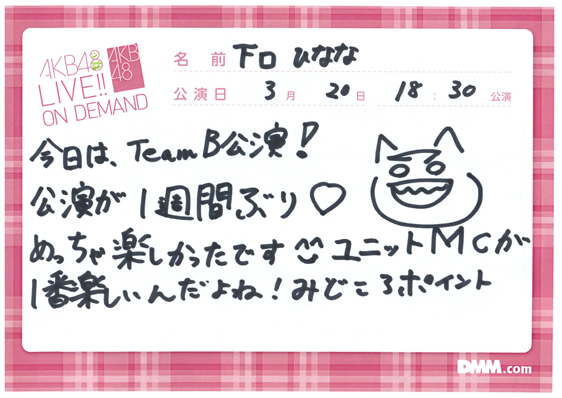 AKB48
LIVE!!
ON DEMAND
AKB
48
名前 下口ひなな
公演日 3月20日 18:30公演
今日は、TeamB公演!
公演が1週間ぶり♡
めっちゃ楽しかったです ユニットMCが
1番楽しいんだよね!みどころポイント
DMM.com